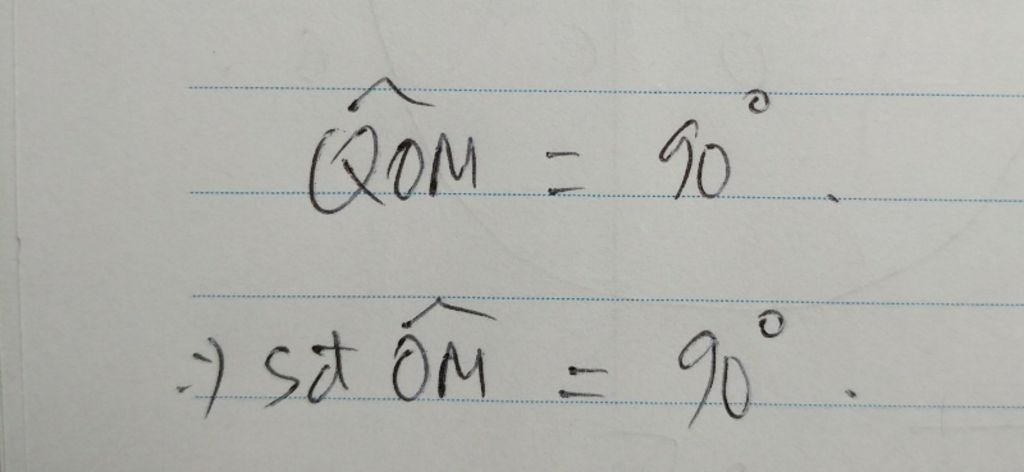 \widehat{QOM} = 90° .
=> sđ \widehat{OM} = 90° .